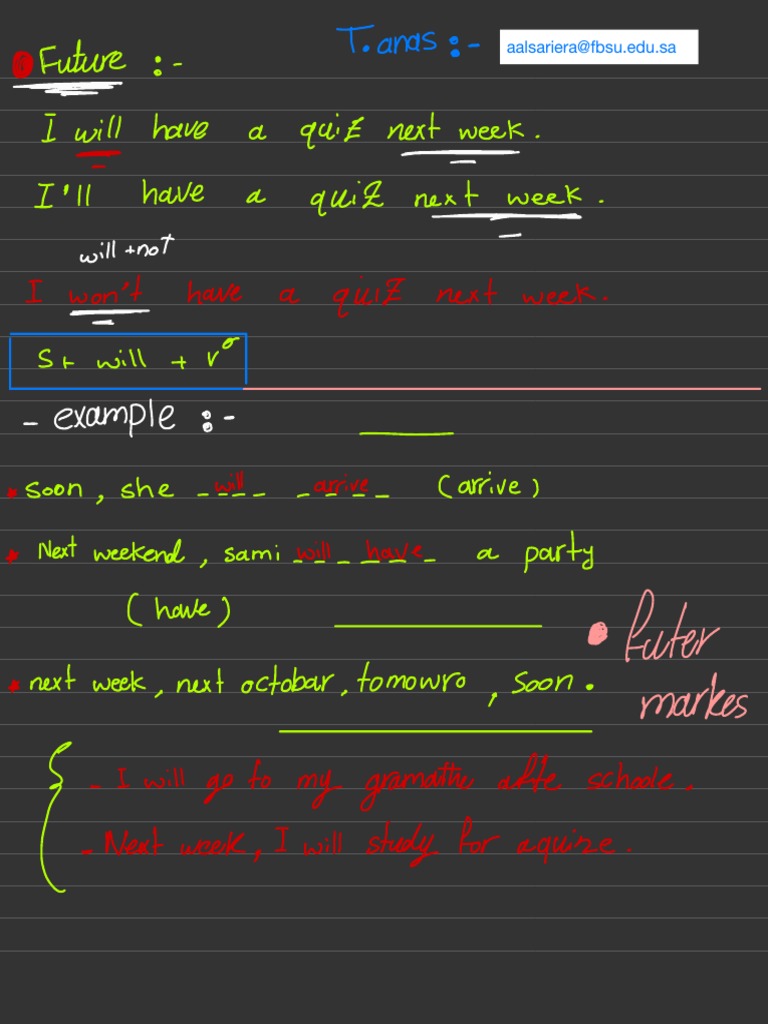 T. anas :-
aalsariera@fbsu.edu.sa
Future :-
I will have a quiz next week.
I'll have a quiz next week.
will + not
I won't have a quiz next week.
S+ will + vº
- example :-
soon, she will arrive (arrive)
Next weekend, sami will have a party
(have)
futer
markes
next week, next octobar, tomowro, soon.
- I will go to my gramathe afte schoole.
- Next week, I will study for aquize.